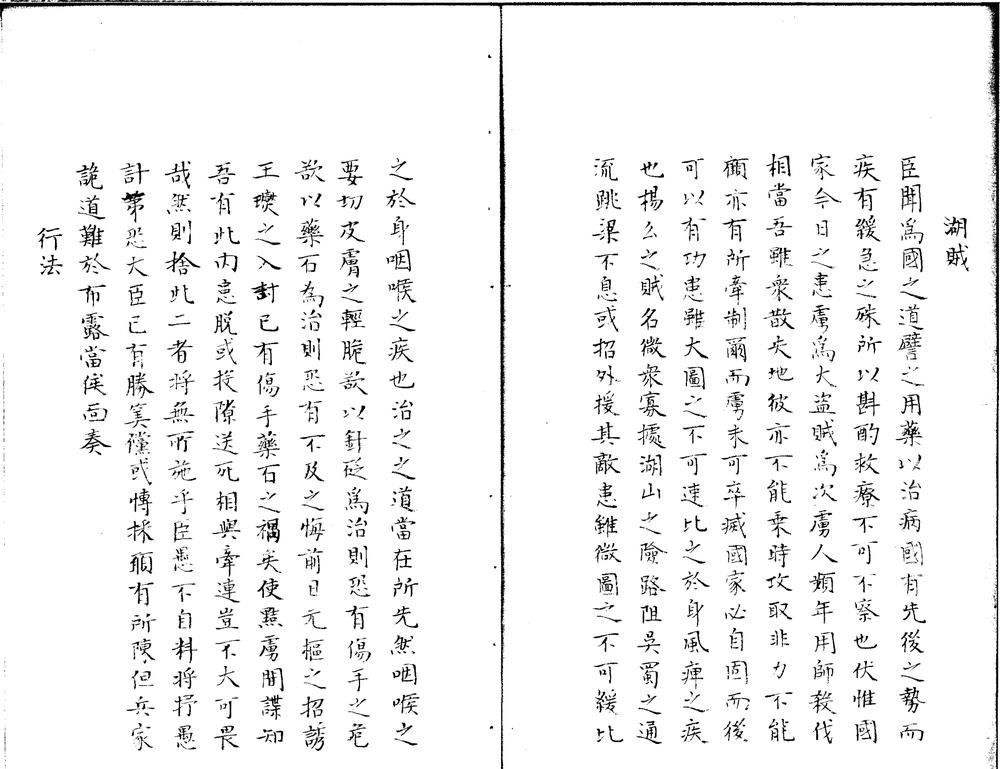 湖賊
臣聞爲國之道譬之用藥以治病國有先後之勢而
疾有緩急之殊所以斟酌救療不可不察也伏惟國
家今日之患虜爲大盜賊爲次虜人頻年用師殺伐
相當吾雖衆散失地彼亦不能乗時攻取非力不能
顧亦有所牽制爾而虜未可卒滅國家必自固而後
可以有功患雖大圖之不可速比之於身風痺之疾
也楊么之賊名微衆寡擄湖山之險路阻吳蜀之通
流跳梁不息或招外援其敵患雖微圖之不可緩比
之於身咽喉之疾也治之之道當在所先然咽喉之
要切皮膚之輕脆欲以針砭爲治則恐有傷手之危
欲以藥石為治則恐有不及之悔前日元樞之招誘
王𤫉之入討已有傷手藥石之禍矣使黠虜間諜知
吾有此内患脱或投隙送死相與牽連豈不大可畏
哉然則捨此二者將無所施乎臣愚不自料將抒愚
計第恐大臣已有勝筭儻或博採頋有所陳但兵家
詭道難於布露當俟面奏
行法